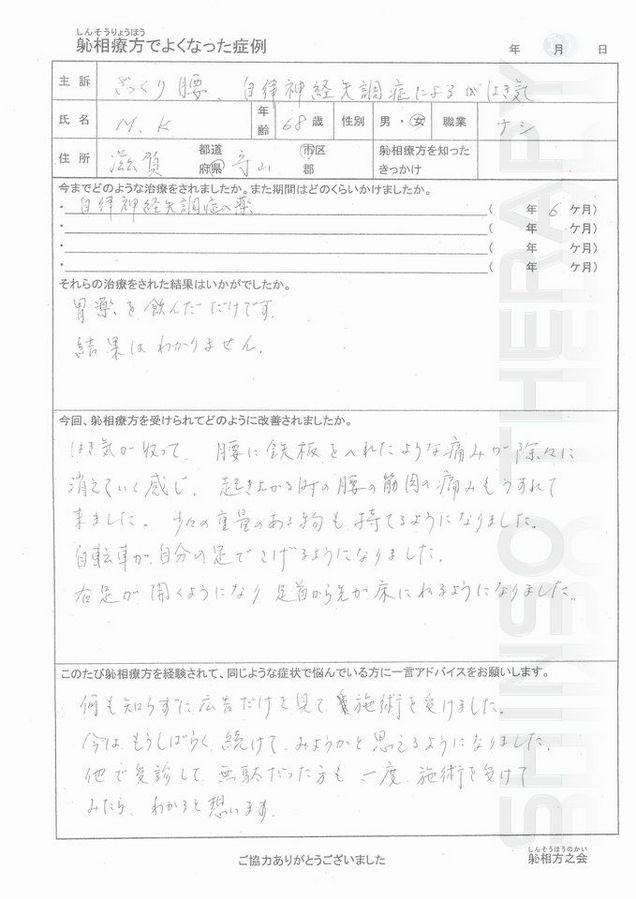 しんそうりょうほう
躰相療方でよくなった症例
年 月 日
主訴 ぎっくり腰、自律神経失調症によるはき気
氏名 M.K 年齢 68歳 性別 男・女 職業 ナシ
住所 滋賀 都道府県 守山 市区郡 躰相療方を知ったきっかけ
今までどのような治療をされましたか。また期間はどのくらいかけましたか。
・自律神経失調症の薬 ( 年 6 ケ月)
・ ( 年 ケ月)
・ ( 年 ケ月)
・ ( 年 ケ月)
それらの治療をされた結果はいかがでしたか。
胃薬を飲んだだけです。
結果はわかりません。
今回、躰相療方を受けられてどのように改善されましたか。
はき気が収って、腰に鉄板を入れたような痛みが除々に
消えていく感じ、起き上がる時の腰の筋肉の痛みもうすれて
来ました。少々の重量のある物も持てるようになりました。
自転車が自分の足でこげるようになりました。
右足が開くようになり足首から先が床に われるようになりました。
このたび躰相療方を経験されて、同じような症状で悩んでいる方に一言アドバイスをお願いします。
何も知らずに広告だけを見て施術を受けました。
今は、もうしばらく、続けて、みようかと思えるようになりました。
他で受診して、無駄だった方も、一度、施術を受けて
みたら、わかると想います。
SHINSO THERAPY
ご協力ありがとうございました
しんそうほうのかい
躰相方之会